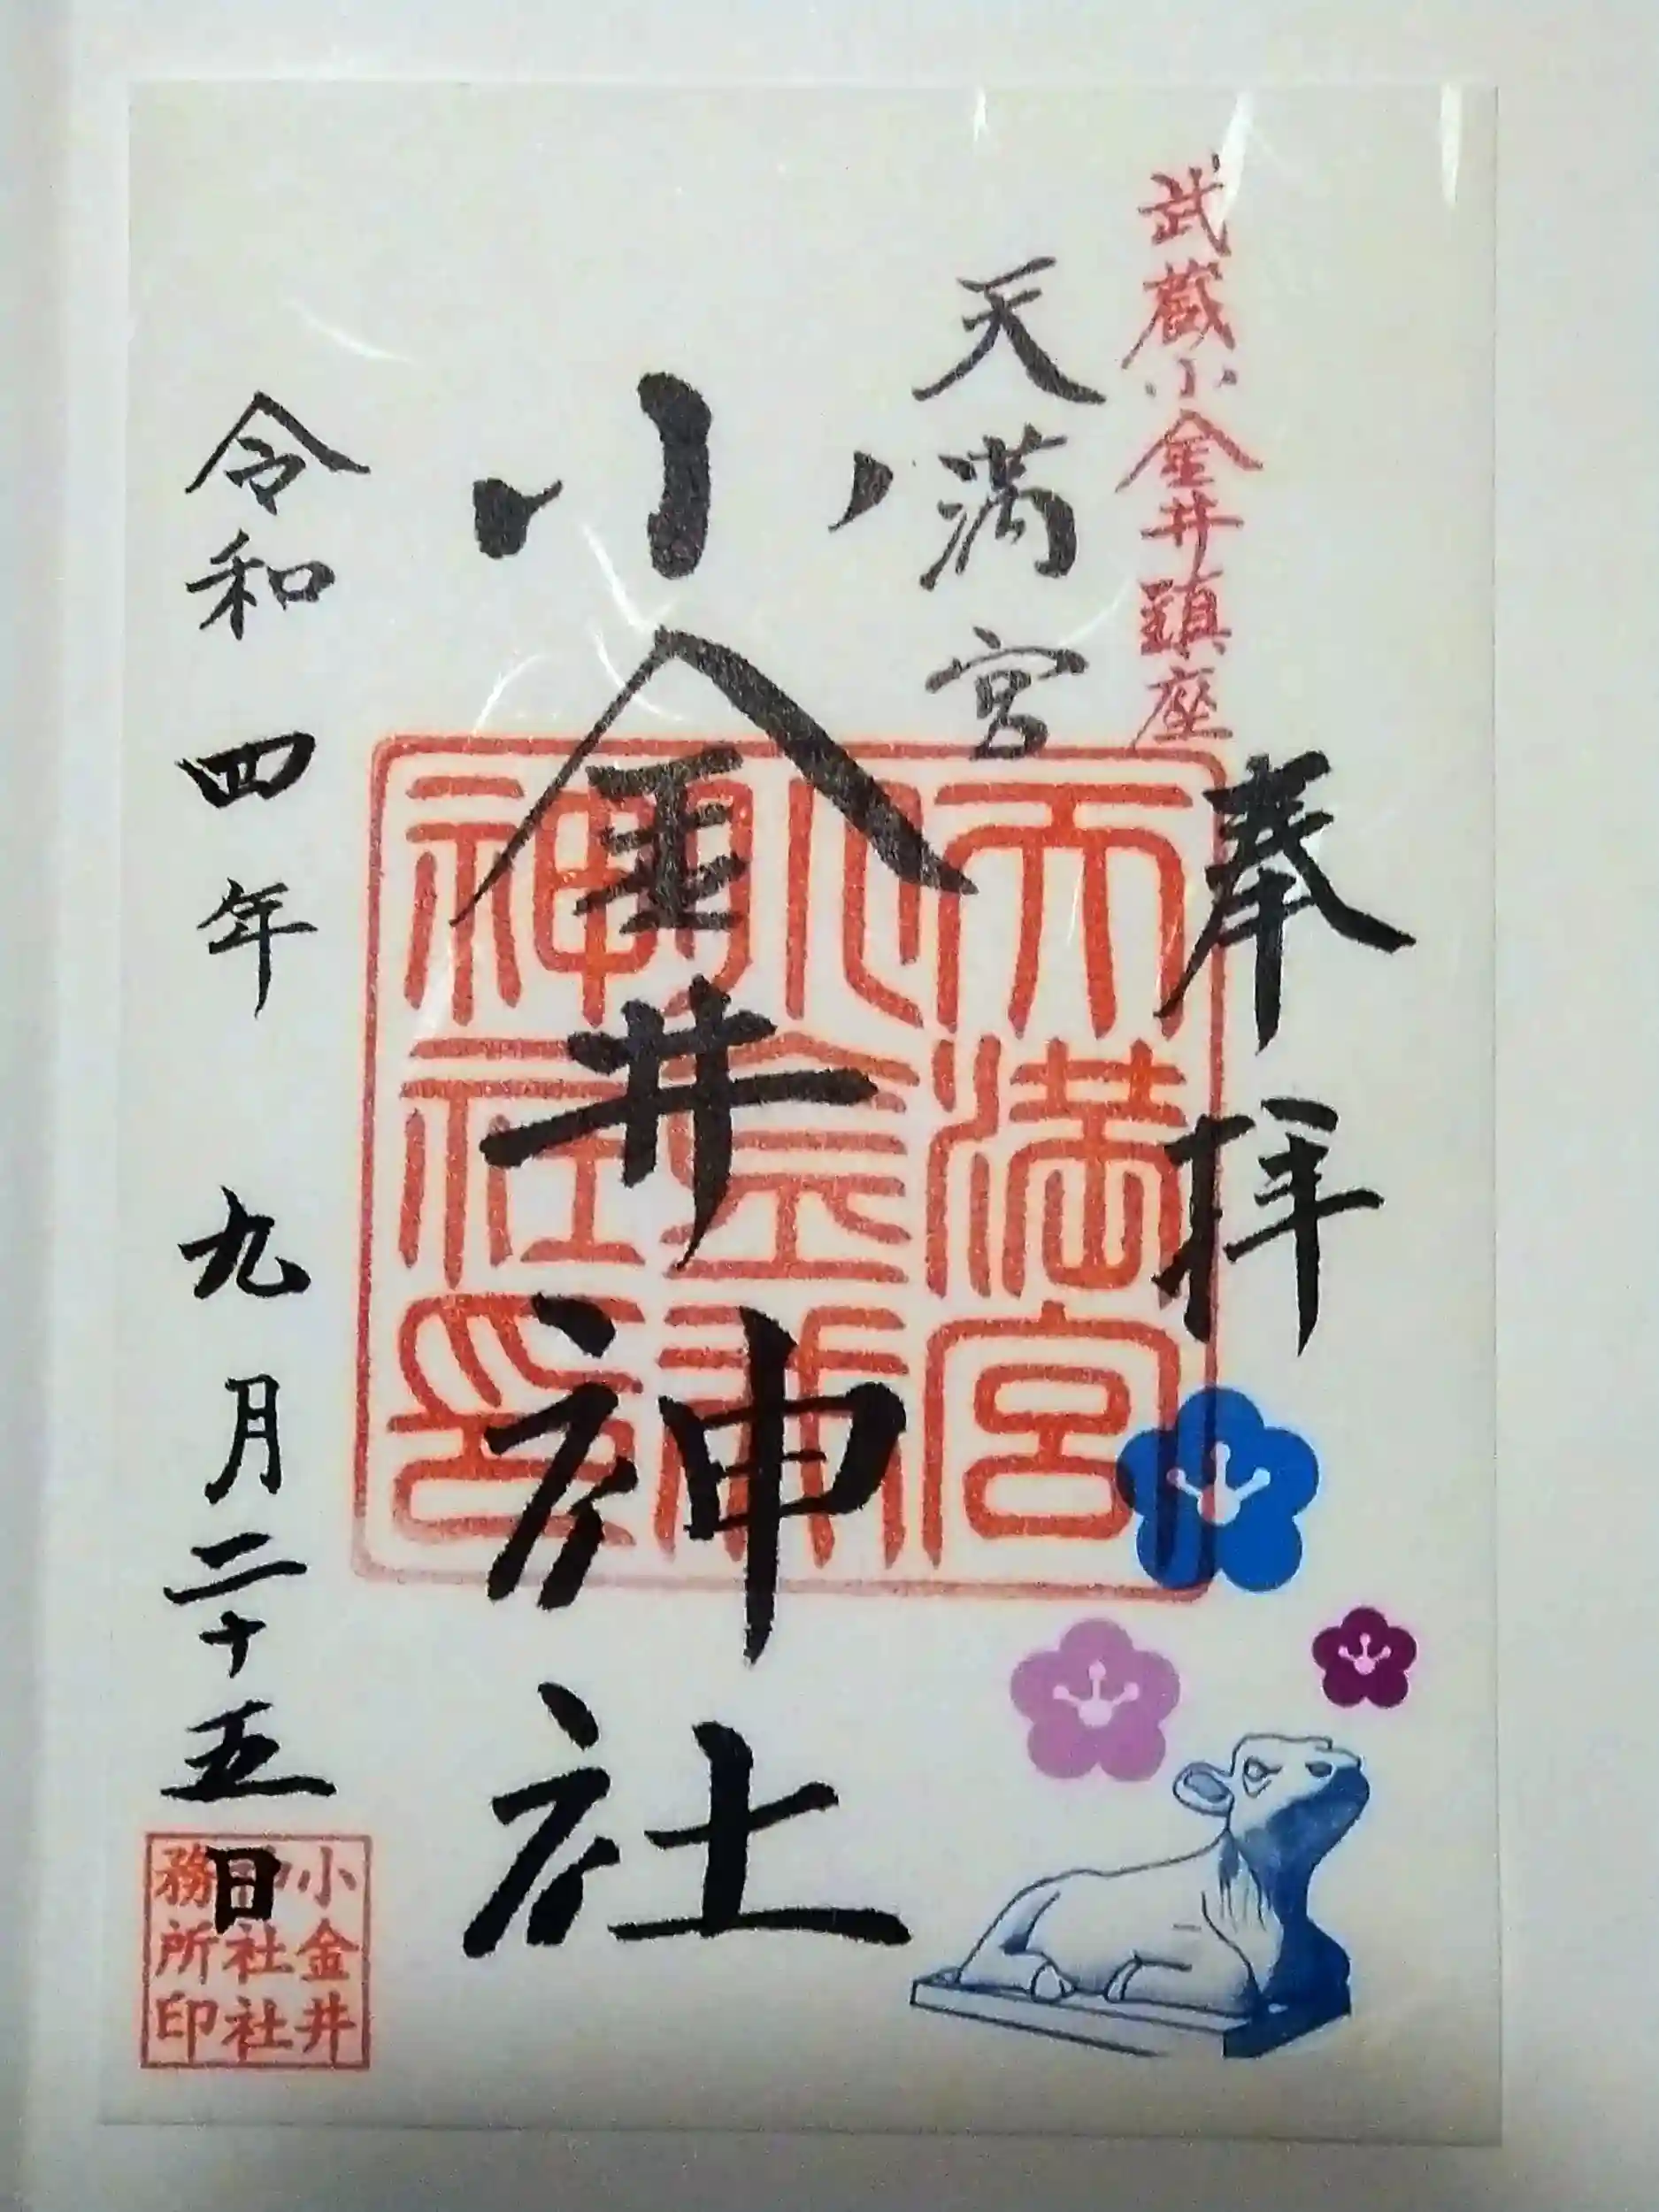 奉拝
武蔵小金井鎮座
天満宮
小金井神社
令和四年 九月二十五日
天満宮
小金井
神社印
小金井
神社社
務所印